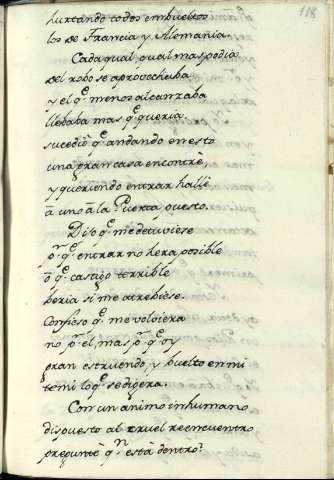 118
hurtando todos embueltos
los de Francia y Alemania.
Cada qual qual mas podia
del robo se aprovechaba
y el q.^e menos alcanzaba
llebaba mas q.^e queria.
sucediò q.^e andando en esto
una gran casa encontrè,
y queriendo entrar hallè
à uno à la Puerta puesto.
Dijo q.^e me detuviese
p.^r q.^e entrar no hera posible
ò q.^e castigo terrible
beria si me atrebiese.
Confieso q.^e me volviera
no p.^r el, mas p.^r q.^e oy
gran estruendo, y buelto en mi
temi lo q.^e se digera.
Con un animo inhumano
dispuesto al cruel reencuentro
preguntè q.^n està dentro?